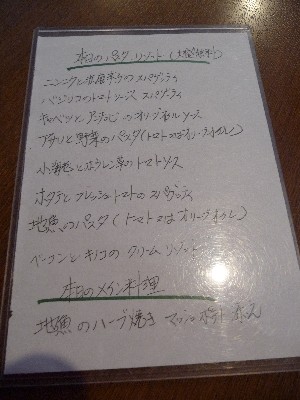 本日のパスタ リゾット (大盛無料)
ニンニクと唐辛子のスパゲッティ
バジリコのトマトソース スパゲッティ
キャベツとアンチョビのオリジナルソース
アサリと野菜のパスタ (トマト又はオリーブオイル)
小海老とホウレン草のトマトソース
ホタテとフレッシュトマトのスパゲッティ
地魚のパスタ (トマト又はオリーブオイル)
ベーコンとキノコのクリームリゾット
本日のメイン料理
地魚のハーブ焼き マッシュポテト添え